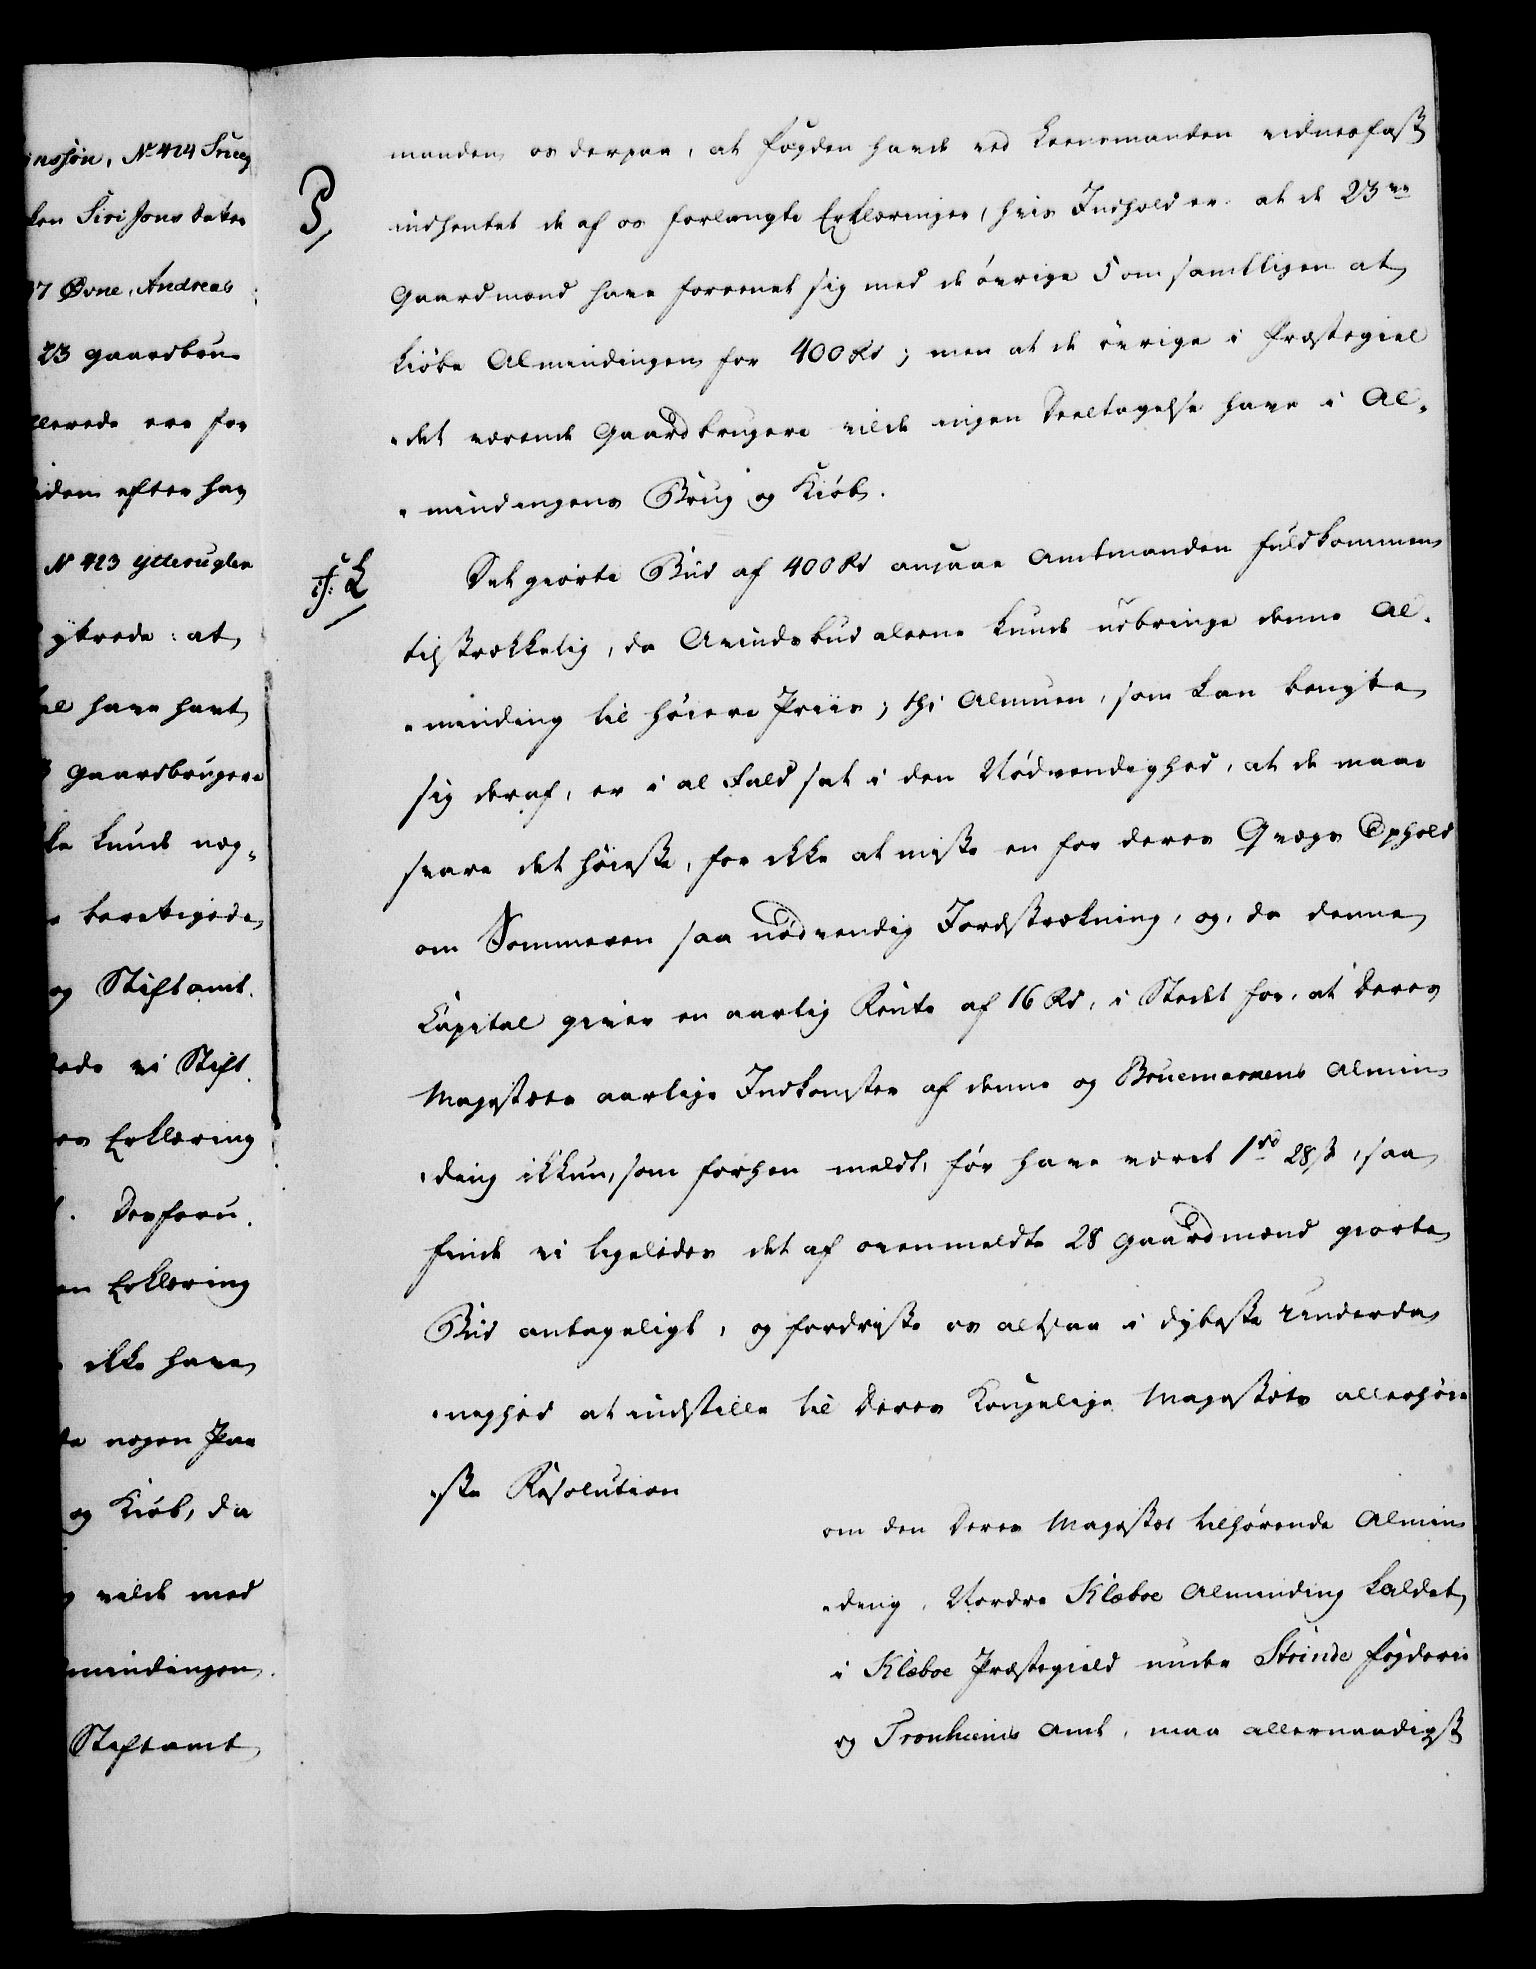 inssøn, No 424 Srueg
ken Siri Jons Datter
37 Øvne, Andreas
23 Gaardbru-
llerede ere for
iden efter hav
No 423 Ytteruglen
ytrede: at
al have havt
3 Gaardbrugere
ke kunde nog-
e berettigede
og Stiftamt.
ede vi Stift.
es Erklæring
Desforu.
en Erklæring
ikke have
te nogen Paa
og Kiøb, da
g vilde med
mindingen.
Stiftamt
manden os derpaa, at Fogden havde ved Leensmanden vidnesfast
S,
indhentet de af os forlangte Erklæringer, hvis Indhold er at de 23de
Gaardmænd have foreenet sig med de øvrige 5 om samtligen at
kiøbe Almindingen for 400 Rd; men at de øvrige i Præstegiel
-det værende Gaardbrugere vilde ingen Deeltagelse have i Al-
-mindingens Brug og Kiøb.
Det giorte Bud af 400 Rd ansaae Amtmanden fuldkommen
:f: L
tilstrækkelig, da Avindsbud aleene kunde udbringe denne Al-
-minding til høiere Priis; thi Almuen, som kan benytte
sig deraf, er i al Fald sat i den Nødvendighed, at de maae
svare det høieste, for ikke at miste en for deres Qvægs Ophold
om Sommeren saa nødvendig Jordstrækning, og, da denne
Capital giver en aarlig Rente af 16 Rd, i Stedet for, at Deres
Majestæts aarlige Indkomster af denne og Bruemarkens Almin-
-ding ikkun, som forhen meldt, før have været 1 rd 28 s, saa
finde vi ligeledes det af ovenmeldte 28 Gaardmænd giorte
Bud antageligt, og fordriste os altsaa i dybeste Underda-
-nighed at indstille til Deres Kongelige Majestæts allerhøie-
-ste Resolution
om den Deres Majestæt tilhørende Almin-
-ding, Nordre Klæboe Alminding kaldet,
i Klæboe Præstegield under Strinde Fogderie
og Tronhiems Amt, maa allernaadigst